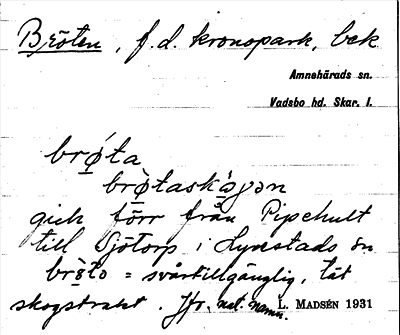 Bröten, f.d. kronopark, bek
Amnehärads sn.
Vadsbo hd. Skar. l.
brǿta
brø̀taskɔ̀gən
gick förr från Pipehult
till Sjötorp i Lyrestads sn
brø̀to = svårtillgänglig, tät
skogstrakt. Jfr. nat. namn.
L. MADSÉN 1931